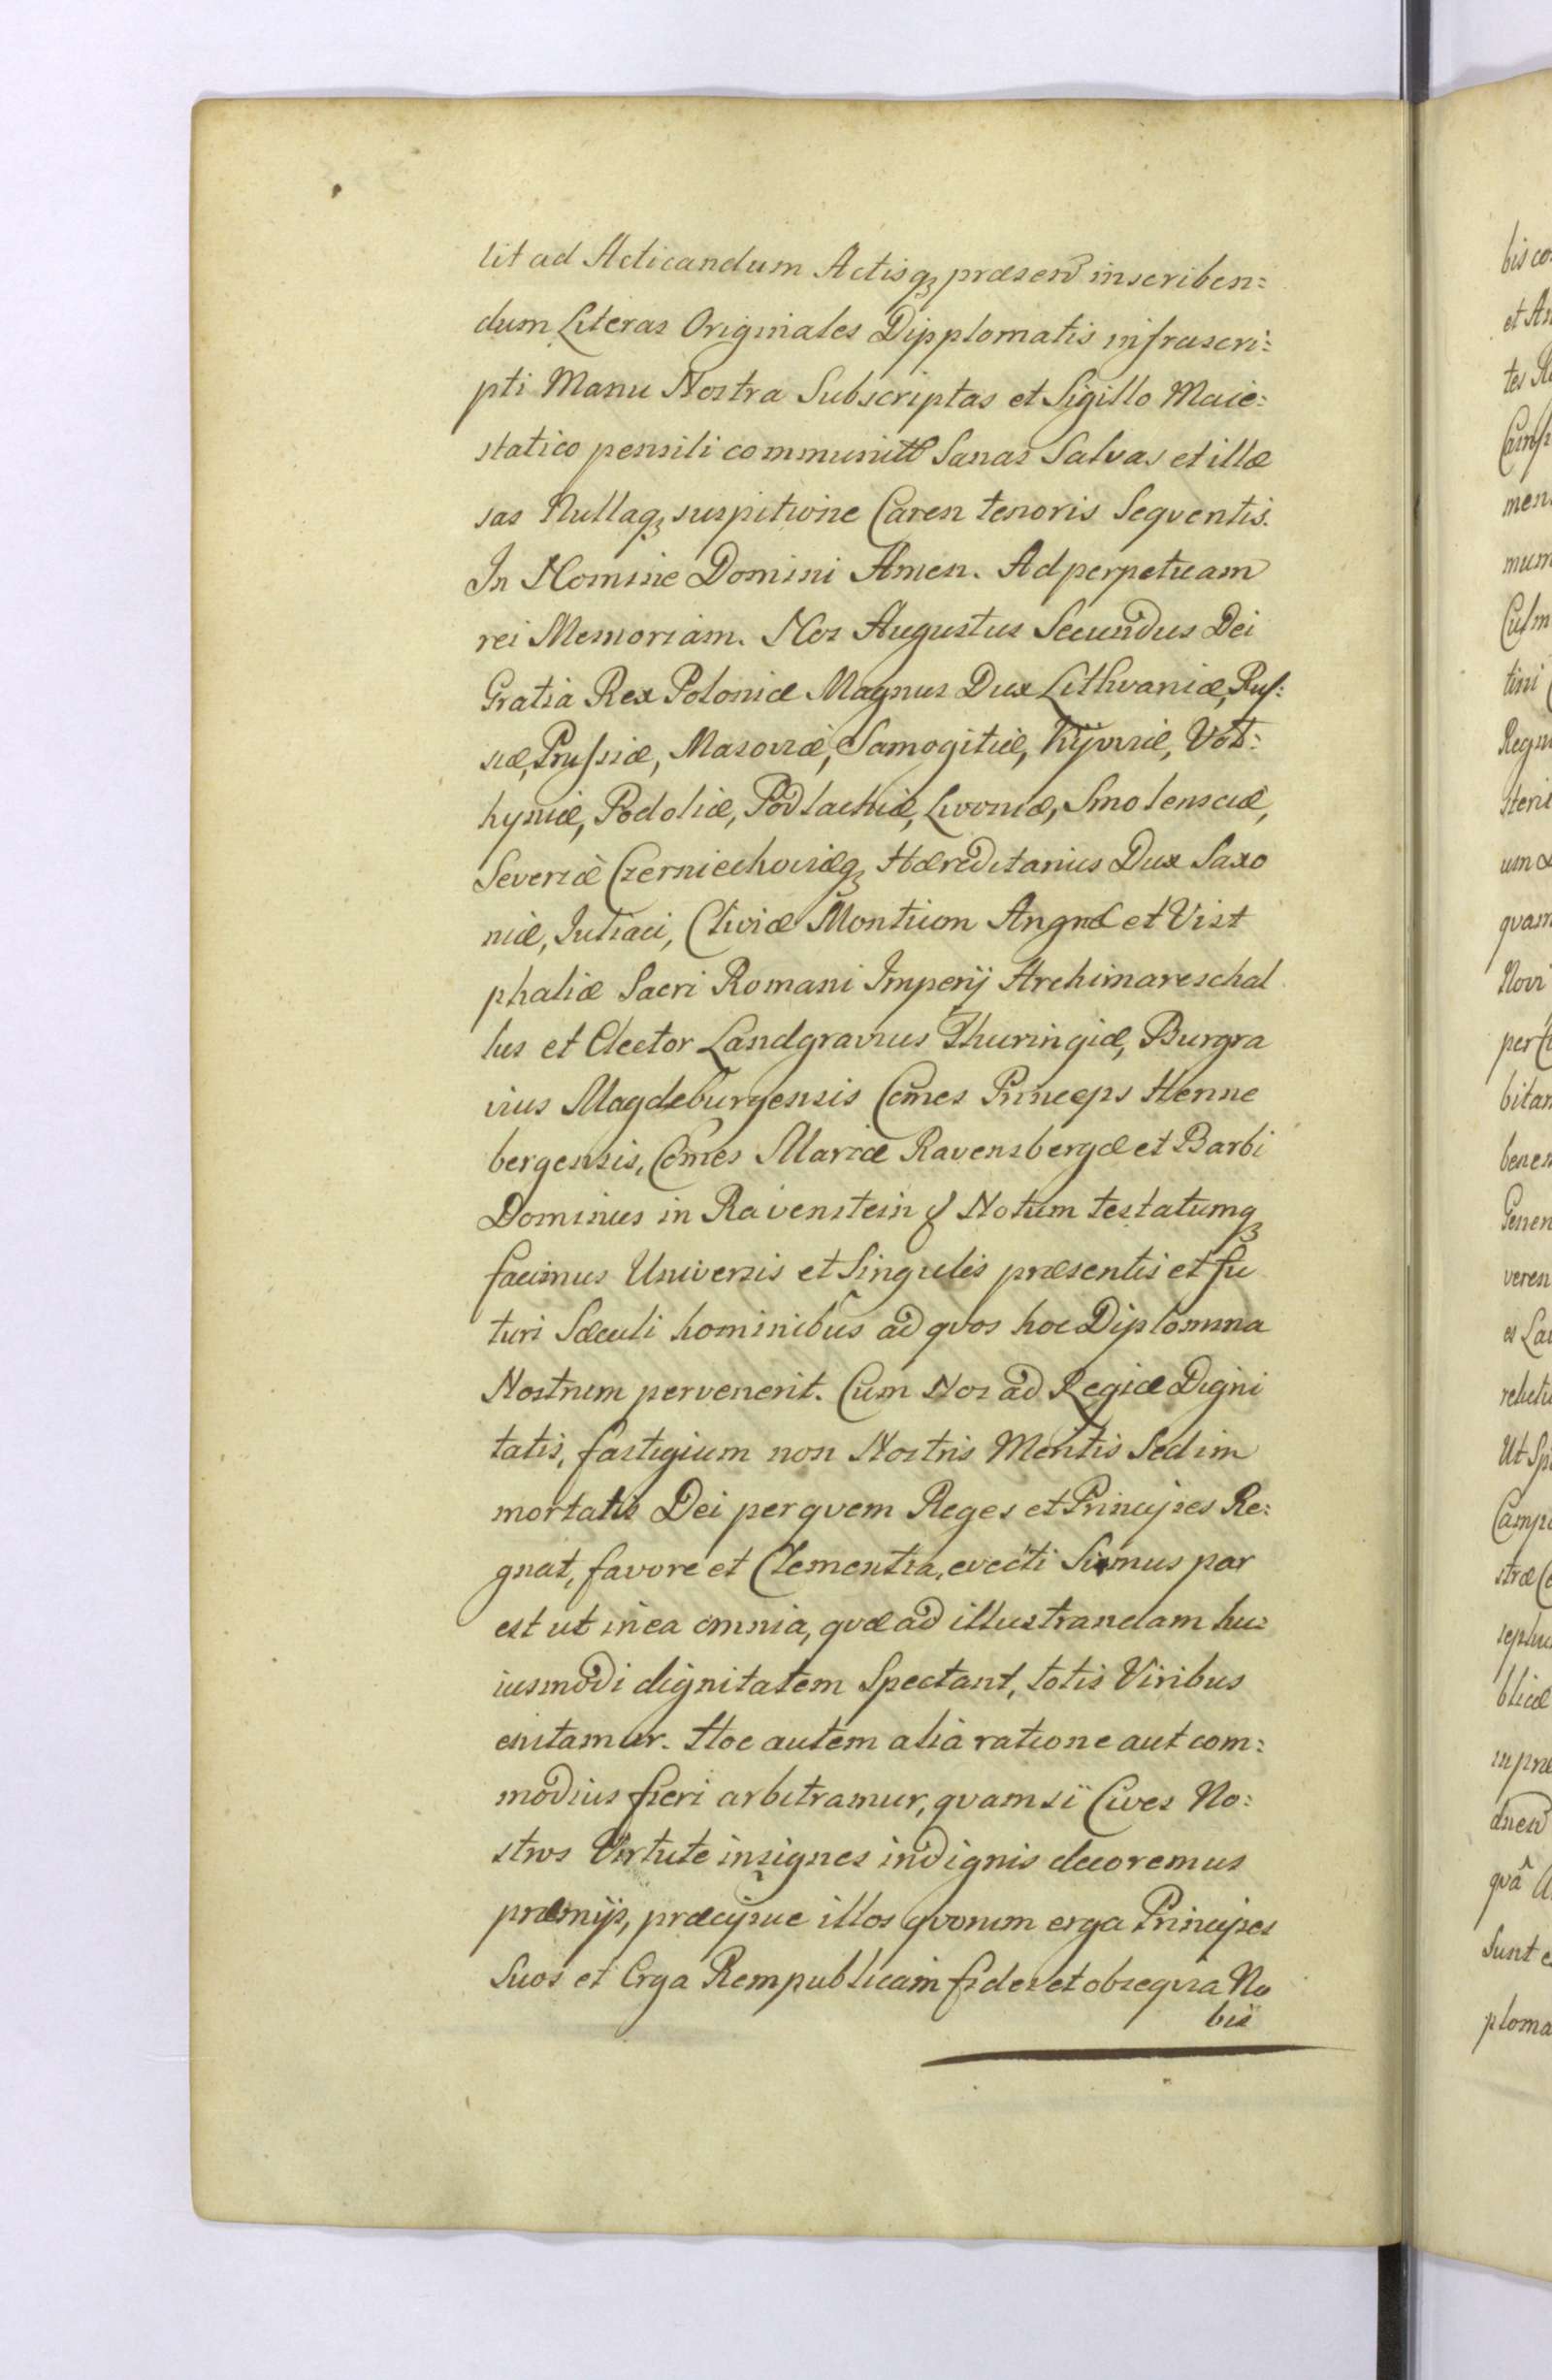 lit ad Acticandum Actisq3 præsen inscriben:
dum Literas Originales Dipplomatis infrascri:
pti Manu Nostra Subscriptas et Sigillo Maie:
statico pensili communitt Sanas Salvas et illæ
sas Nullaq3 suspitione Caren tenoris Sequentis.
In Nomine Domini Amen. Ad perpetuam
rei Memoriam. Nos Augustus Secundus Dei
Gratia Rex Poloniæ Magnus Dux Lithvaniæ, Rus:
siæ, Prussiæ, Masoviæ, Samogitiæ, Kijoviæ, Vol:
hyniæ, Podoliæ, Podlachiæ, Livoniæ, Smolensciæ,
Severiæ Czerniechoviæq3 Hæreditarius Dux Saxo
niæ, Iuliaci, Cliviæ Montium Angriæ et Vist
phaliæ Sacri Romani Imperij Archimareschal
lus et Elector Landgravius Thuringiæ, Burgra
vius Magdeburgensis Comes Princeps Henne
bergensis, Comes Marciæ Ravensbergæ et Barbi
Dominus in Ravenstein & Notum testatumq3
facimus Universis et Singulis præsentis et fu
turi Sæculi hominibus ad qvos hoc Diplomma
Nostrum pervenerit. Cum Nos ad Regiæ Digni
tatis, fastigium non Nostris Meritis Sed im
mortalis Dei per qvem Reges et Principes Re:
gnat, favore et Clementia, evecti Simus par
est ut in ea omnia, qvæ ad illustrandam hu:
iusmodi dignitatem Spectant, totis Viribus
enitamur. Hoc autem alia ratione aut com:
modius fieri arbitramur, qvam si Cives No:
stros Virtute insignes indignis decoremus
præmijs, præcipue illos qvorum erga Principes
Suos et Erga Rempublicam fides et obseqvia No
bis